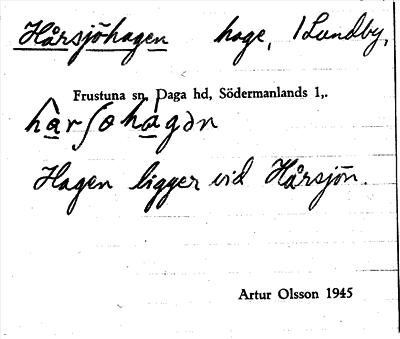 Hårsjöhagen hage, 1 Lundby,
Frustuna sn, Daga hd, Södermanlands l,.
hårʃøhagən
Hagen ligger vid Hårsjön.
Artur Olsson 1945